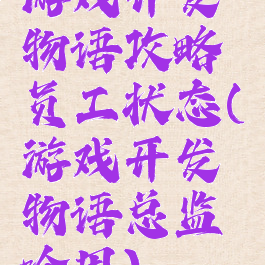 游戏开发
物语攻略
员工状态(
游戏开发
物语总监